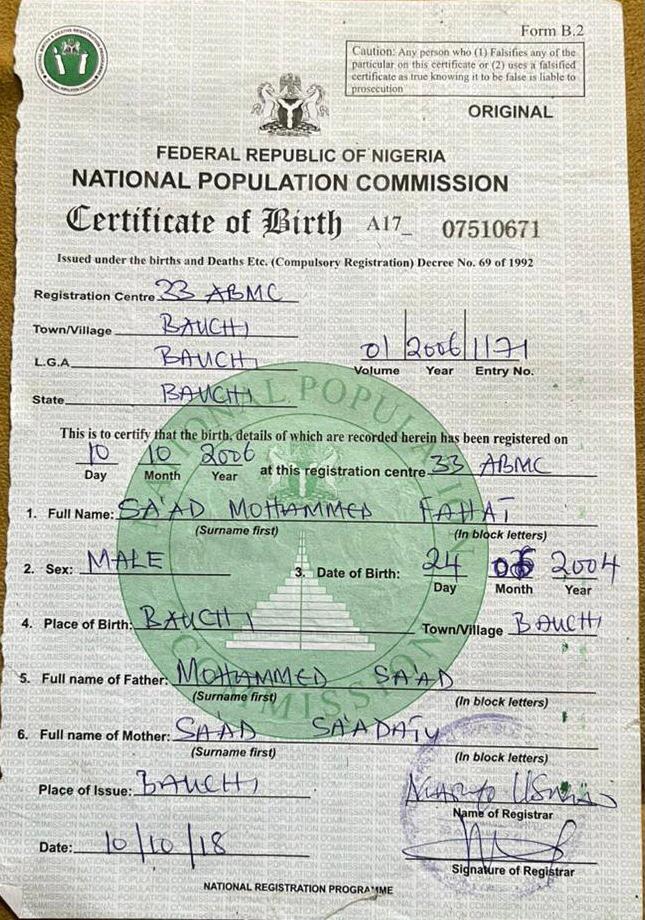 Form B.2
Caution: Any person who (1) Falsifies any of the
particular on this certificate or (2) uses a falsified
certificate as true knowing it to be false is liable to
prosecution
ORIGINAL
FEDERAL REPUBLIC OF NIGERIA
NATIONAL POPULATION COMMISSION
Certificate of Birth A17_ 07510671
Issued under the births and Deaths Etc. (Compulsory Registration) Decree No. 69 of 1992
Registration Centre 33 ABMC
Town/Village BAUCHI
L.G.A BAUCHI 01 2006 1171
Volume Year Entry No.
State BAUCHI
This is to certify that the birth, details of which are recorded herein has been registered on
10 10 2006 at this registration centre 33 ABMC
Day Month Year
1. Full Name: SA'AD MOHAMMED FAHAT
(Surname first) (In block letters)
2. Sex: MALE 3. Date of Birth: 24 2004
Day Month Year
4. Place of Birth: BAUCHI Town/Village BAUCHI
5. Full name of Father: MOHAMMED SA'AD
(Surname first) (In block letters)
6. Full name of Mother: SA'AD SA'ADATU
(Surname first) (In block letters)
Place of Issue: BAUCHI
Name of Registrar
Date: 10/10/18
Signature of Registrar
NATIONAL REGISTRATION PROGRAMME